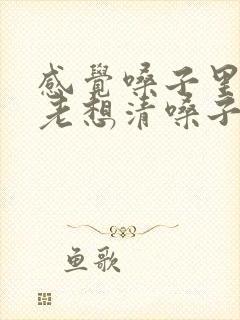 感覺嗓子里
老想清嗓子
鱼歌